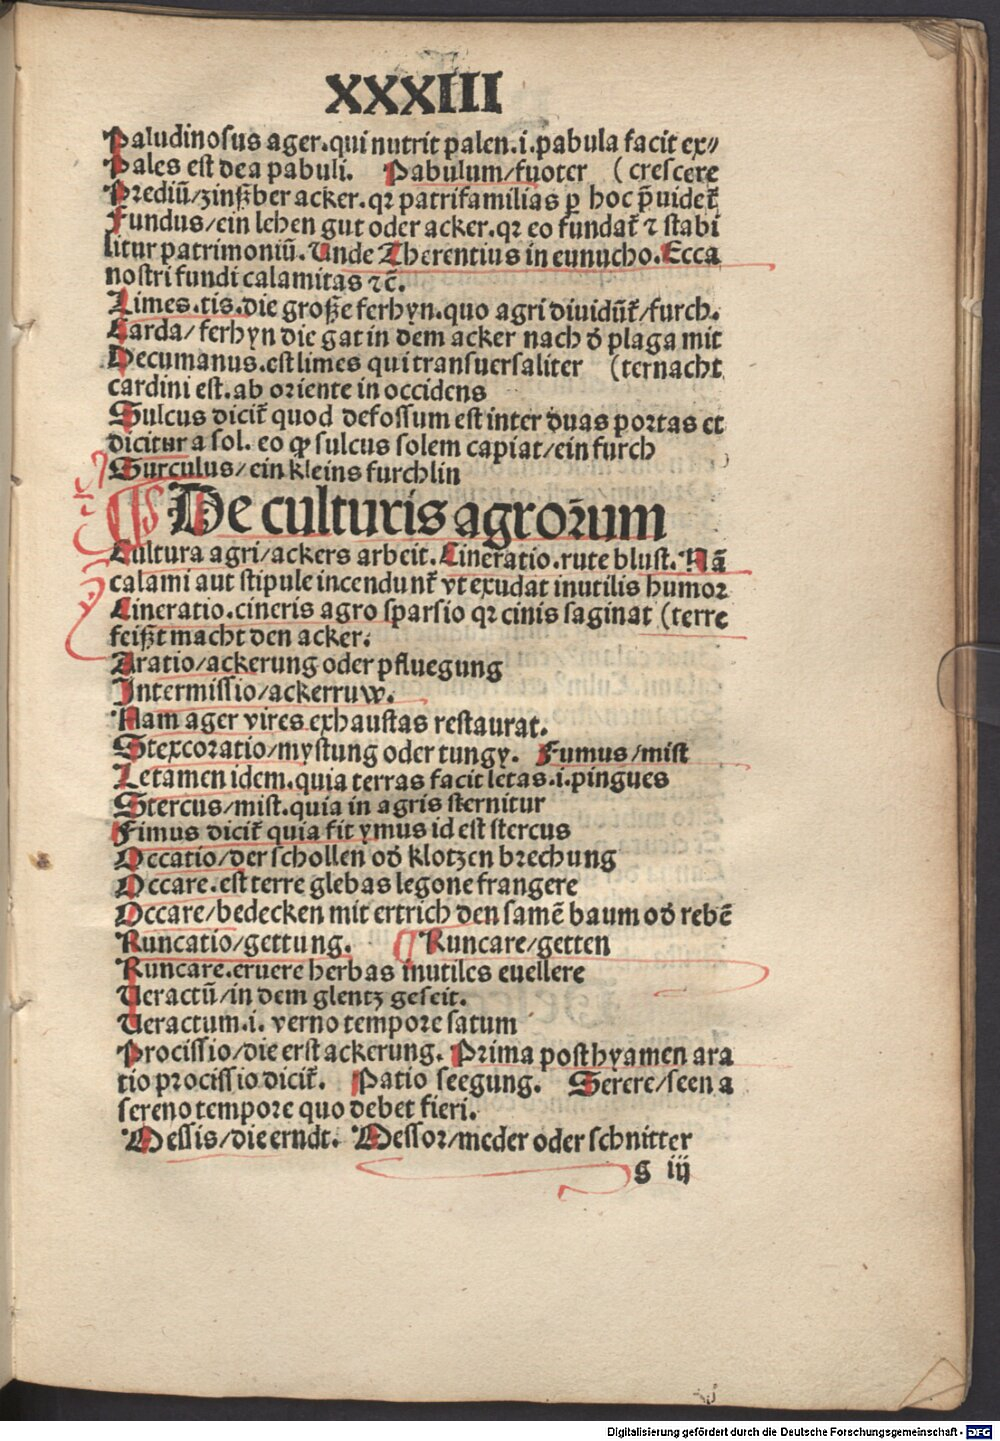 XXXIII
Paludinosus ager.qui nutrit palen.i.pabula facit ex⸗
Pales est dea pabuli. Pabulum/fuoter (crescere
Prediū/zinßber acker.qꝛ patrifamilias ꝑ hoc p̄uidet̄
Fundus/ein lehen gut oder acker.qꝛ eo fundat̄ ⁊ stabi
litur patrimoniū. Unde Therentius in eunucho. Ecca
nostri fundi calamitas ⁊c̄.
Limes.tis.die große ferhyn.quo agri diuidūt̄/furch.
Carda/ferhyn die gat in dem acker nach d̄ plaga mit
Decumanus.est limes qui transuersaliter (ternacht
cardini est.ab oriente in occidens
Sulcus dicit̄ quod defossum est inter duas portas et
dicitur a sol. eo ꝙ sulcus solem capiat/ein furch
Surculus/ein kleins furchlin
De culturis agroꝛum
Cultura agri/ackers arbeit. Cineratio.rute blust. Nā
calami aut stipule incendunt̄ vt exudat inutilis humoꝛ
Cineratio.cineris agro sparsio qꝛ cinis saginat (terre
feißt macht den acker.
Aratio/ackerung oder pfluegung
Intermissio/ackerruw.
Nam ager vires exhaustas restaurat.
Stexcoꝛatio/mystung oder tungy. Fumus/mist
Letamen idem.quia terras facit letas.i.pingues
Stercus/mist.quia in agris sternitur
Fimus dicit̄ quia fit ymus id est stercus
Occatio/der schollen od̄ klotzen bꝛechung
Occare.est terre glebas legone frangere
Occare/bedecken mit ertrich den samē baum od̄ rebē
Runcatio/gettung. Runcare/getten
Runcare.eruere herbas inutiles euellere
Ueractū/in dem glentz geseit.
Ueractum.i. verno tempoꝛe satum
Procissio/die erst ackerung. Prima post hyamen ara
tio pꝛocissio dicit̄. Patio seegung. Serere/seen a
sereno tempoꝛe quo debet fieri.
Messis/die erndt. Messoꝛ/meder oder schnitter
g iij
Digitalisierung gefördert durch die Deutsche Forschungsgemeinschaft - DFG